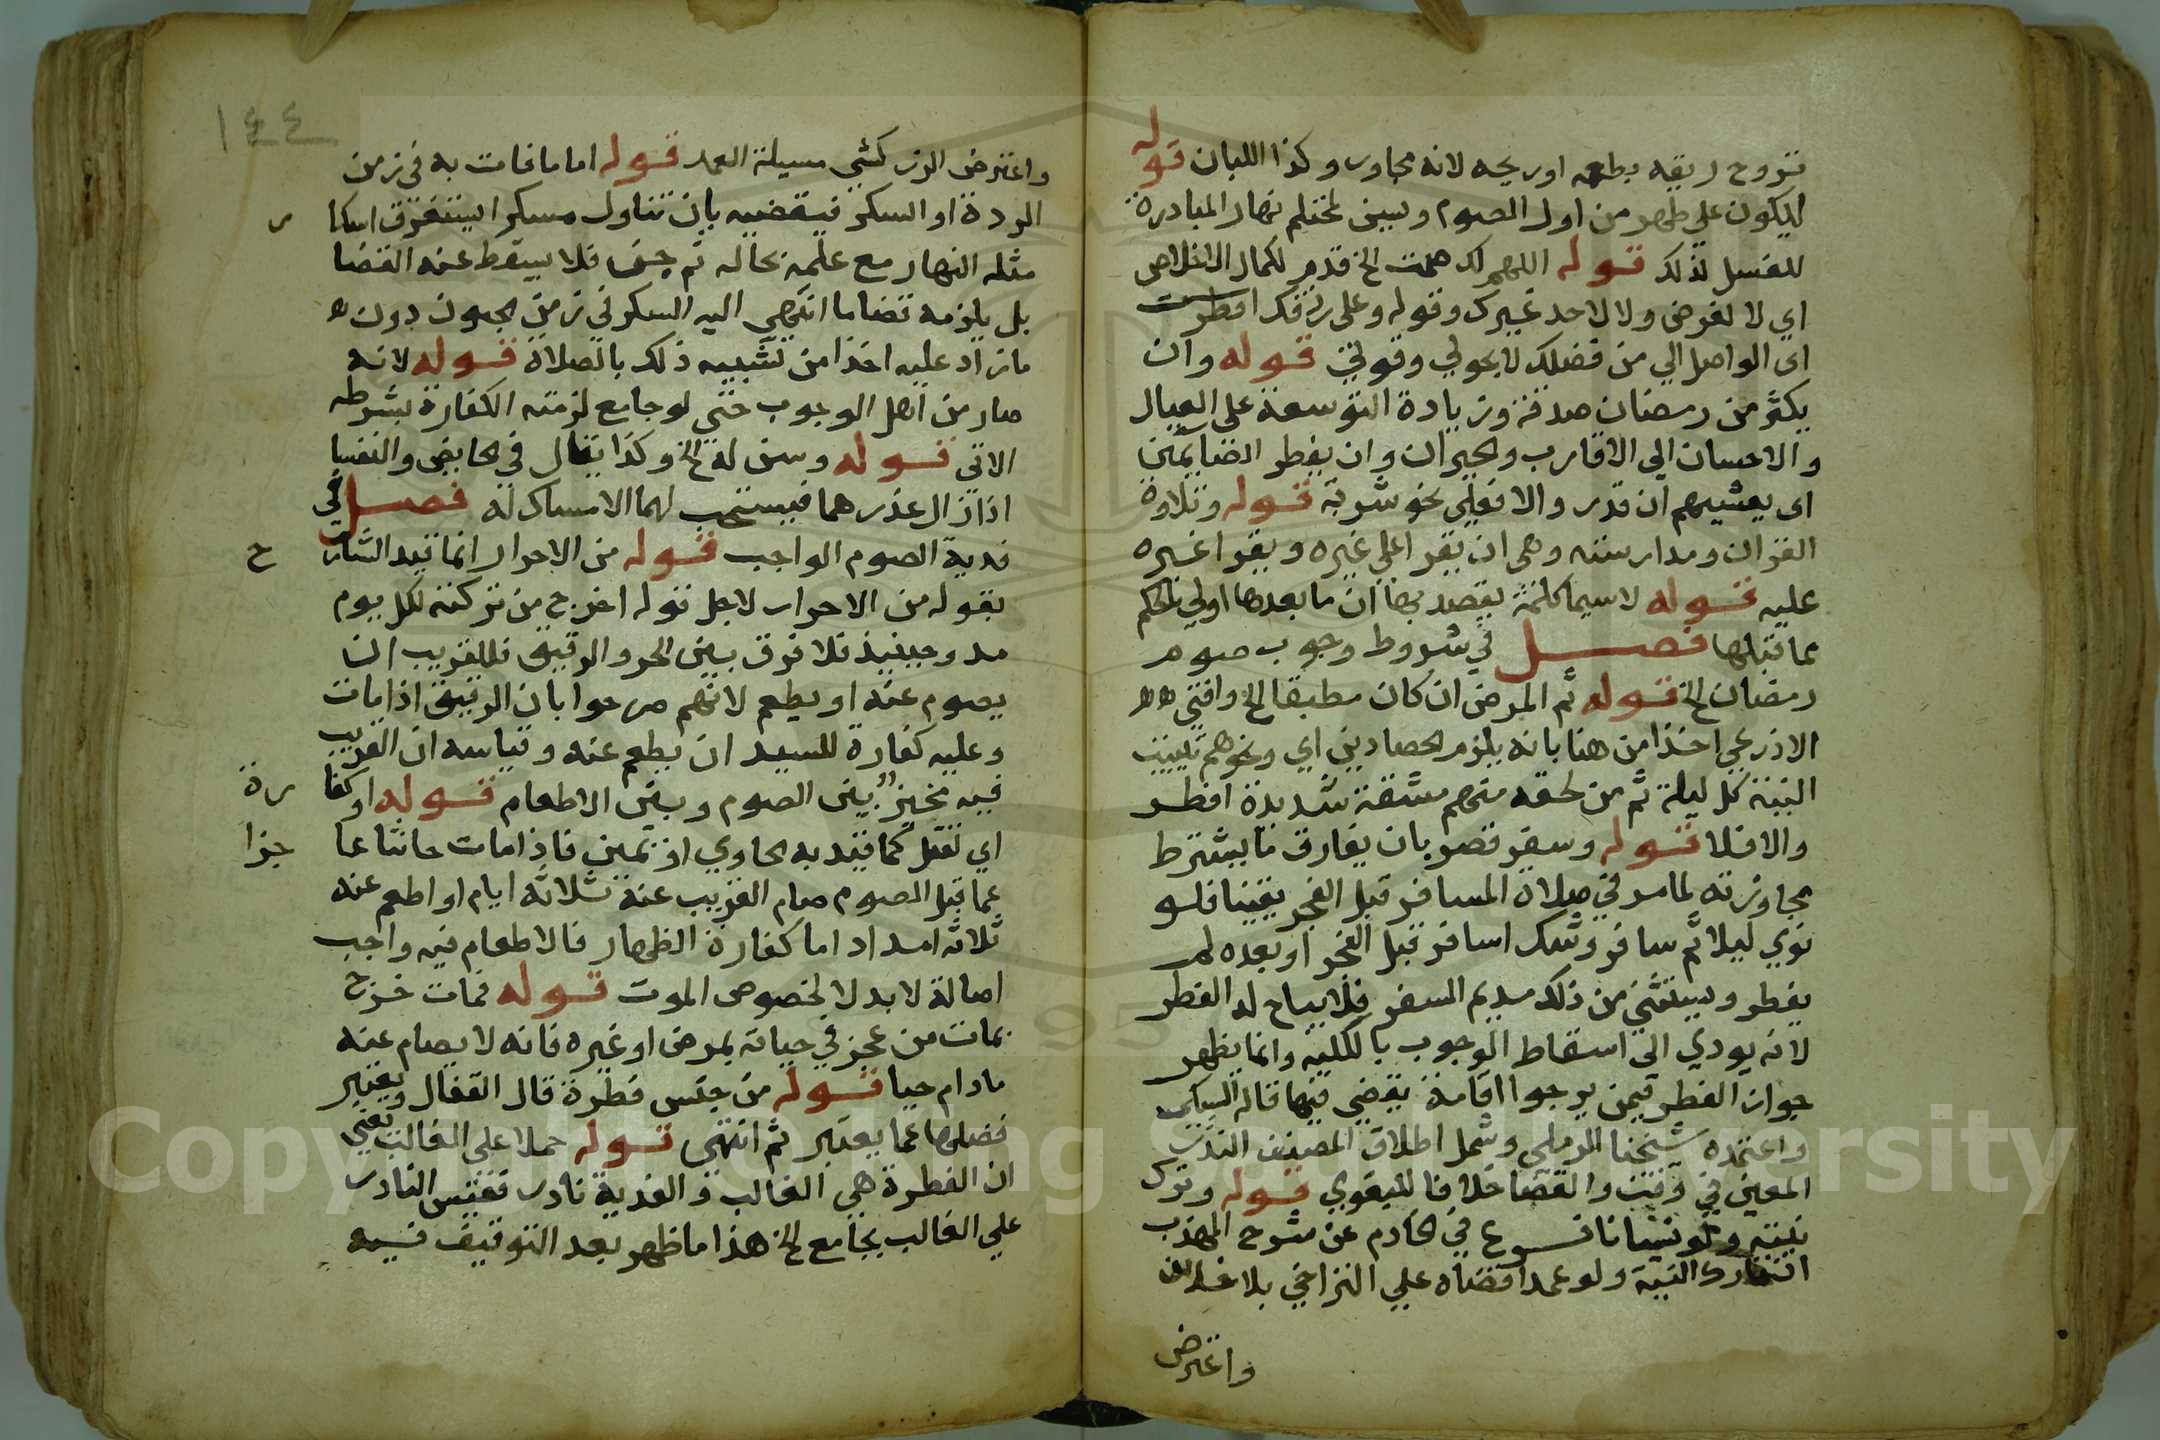 تروح ريقه بطعمه او ريحه لانه مجاور وكذا اللبان قوله
ليكون على طهر من اول الصوم وليبين لمحتلم نهارا المبادرة
للغسل لذلك قوله اللهم لك صمت الخ قدم لكمال الاخلاص
اي لا لغرض ولا لاحد غيرك وقوله وعلى رزقك افطرت
اى الواصل الي من فضلك لا بحولي وقوتي قوله وان
يكثر من رمضان صدقة وزيادة التوسعة على العيال
والاحسان الى الاقارب والجيران وان يفطر الصايمين
اى يعشيهم ان قدر والا فعلى نحو شربة قوله وتلاوة
القران ومدارسته وهى ان يقرا على غيره ويقرا غيره
عليه قوله لاسيما كلمة يقصد بها ان ما بعدها اولى بالحكم
مما قبلها فصل في شروط وجوب صوم
رمضان الخ قوله ثم المرض ان كان مطبقا الخ وافتى
الاذرعي اخذا من هنا بانه يلزم الحصادين اي ونحوهم تبييت
النية كل ليلة ثم من لحقه منهم مشقة شديدة افطر
والا فلا قوله وسفر قصر بان يفارق ما يشترط
مجاوزته لما مر في صلاة المسافر قبل الفجر يقينا فلو
نوي ليلا ثم سافر وشك اسافر قبل الفجر او بعده لم
يفطر ويستثنى من ذلك مديم السفر فلا يباح له الفطر
لانه يودي الى اسقاط الوجوب بالكلية وانما يظهر
جواز الفطر فيمن يرجوا اقامة يقضي فيها قاله السبكى
واعتمده شيخنا الرملى وشمل اطلاق المصنف النذر
المعين في وقت والقضا خلافا للبغوي قوله وترك
نيته ولو نسيانا فرع في الخادم عن شرح المهذب
ان تارك النية ولو عمدا قضاه علي التراخي بلا خلاف
واعترض
١٤٤
واعترض الزركشي مسيلة العمد قوله اما ما فات به في زمن
الردة او السكر فيقضيه بان تناول مسكرا ليستغرق اسكا ر
مثله النهار مع علمه بحاله ثم جن فلا يسقط عنه القضا
بل يلزمه قضا ما انتهي اليه السكر في زمن الجنون دون
ما زاد عليه اخذا من تشبيه ذلك بالصلاة قوله لانه
صار من اهل الوجوب حتى لو جامع لزمته الكفارة بشرطه
الاتي قوله وسن له الخ وكذا يقال في الحايض والنفسا
اذا زال عذرهما فيستحب لهما الامساك له فصل في
فدية الصوم الواجب قوله من الاحرار انما قيد الشار ح
بقوله من الاحرار لاجل قوله اخرج من تركته لكل يوم
مد وحينيذ فلا فرق بين الحر والرقيق فللقريب ان
يصوم عنه او يطعم لانهم صرحوا بان الرقيق اذا مات
وعليه كفارة للسيد ان يطعم عنه وقياسه ان القريب
فيه مخير بين الصوم وبين الاطعام قوله او كفا رة
اي لقتل كما قيد به الحاوي او يمين فاذا مات حانثا عا جزا
عما قبل الصوم صام القريب عنه ثلاثة ايام او اطعم عنه
ثلاثة امداد اما كفارة الظهار فالاطعام فيه واجب
اصالة لا بدلا لخصوص الموت قوله فمات خرج
بمات من عجز في حياته بمرض او غيره فانه لا يصام عنه
مادام حيا قوله من جنس فطرة قال القفال ويعتبر
فضلها عما يعتبر ثم انتهى قوله حملا على الغالب يعني
ان الفطرة هي الغالب والفدية نادر فيقتس النادر
علي الغالب بجامع الخ هذا ما ظهر بعد التوقيف فيه
Copyright © King Saud University